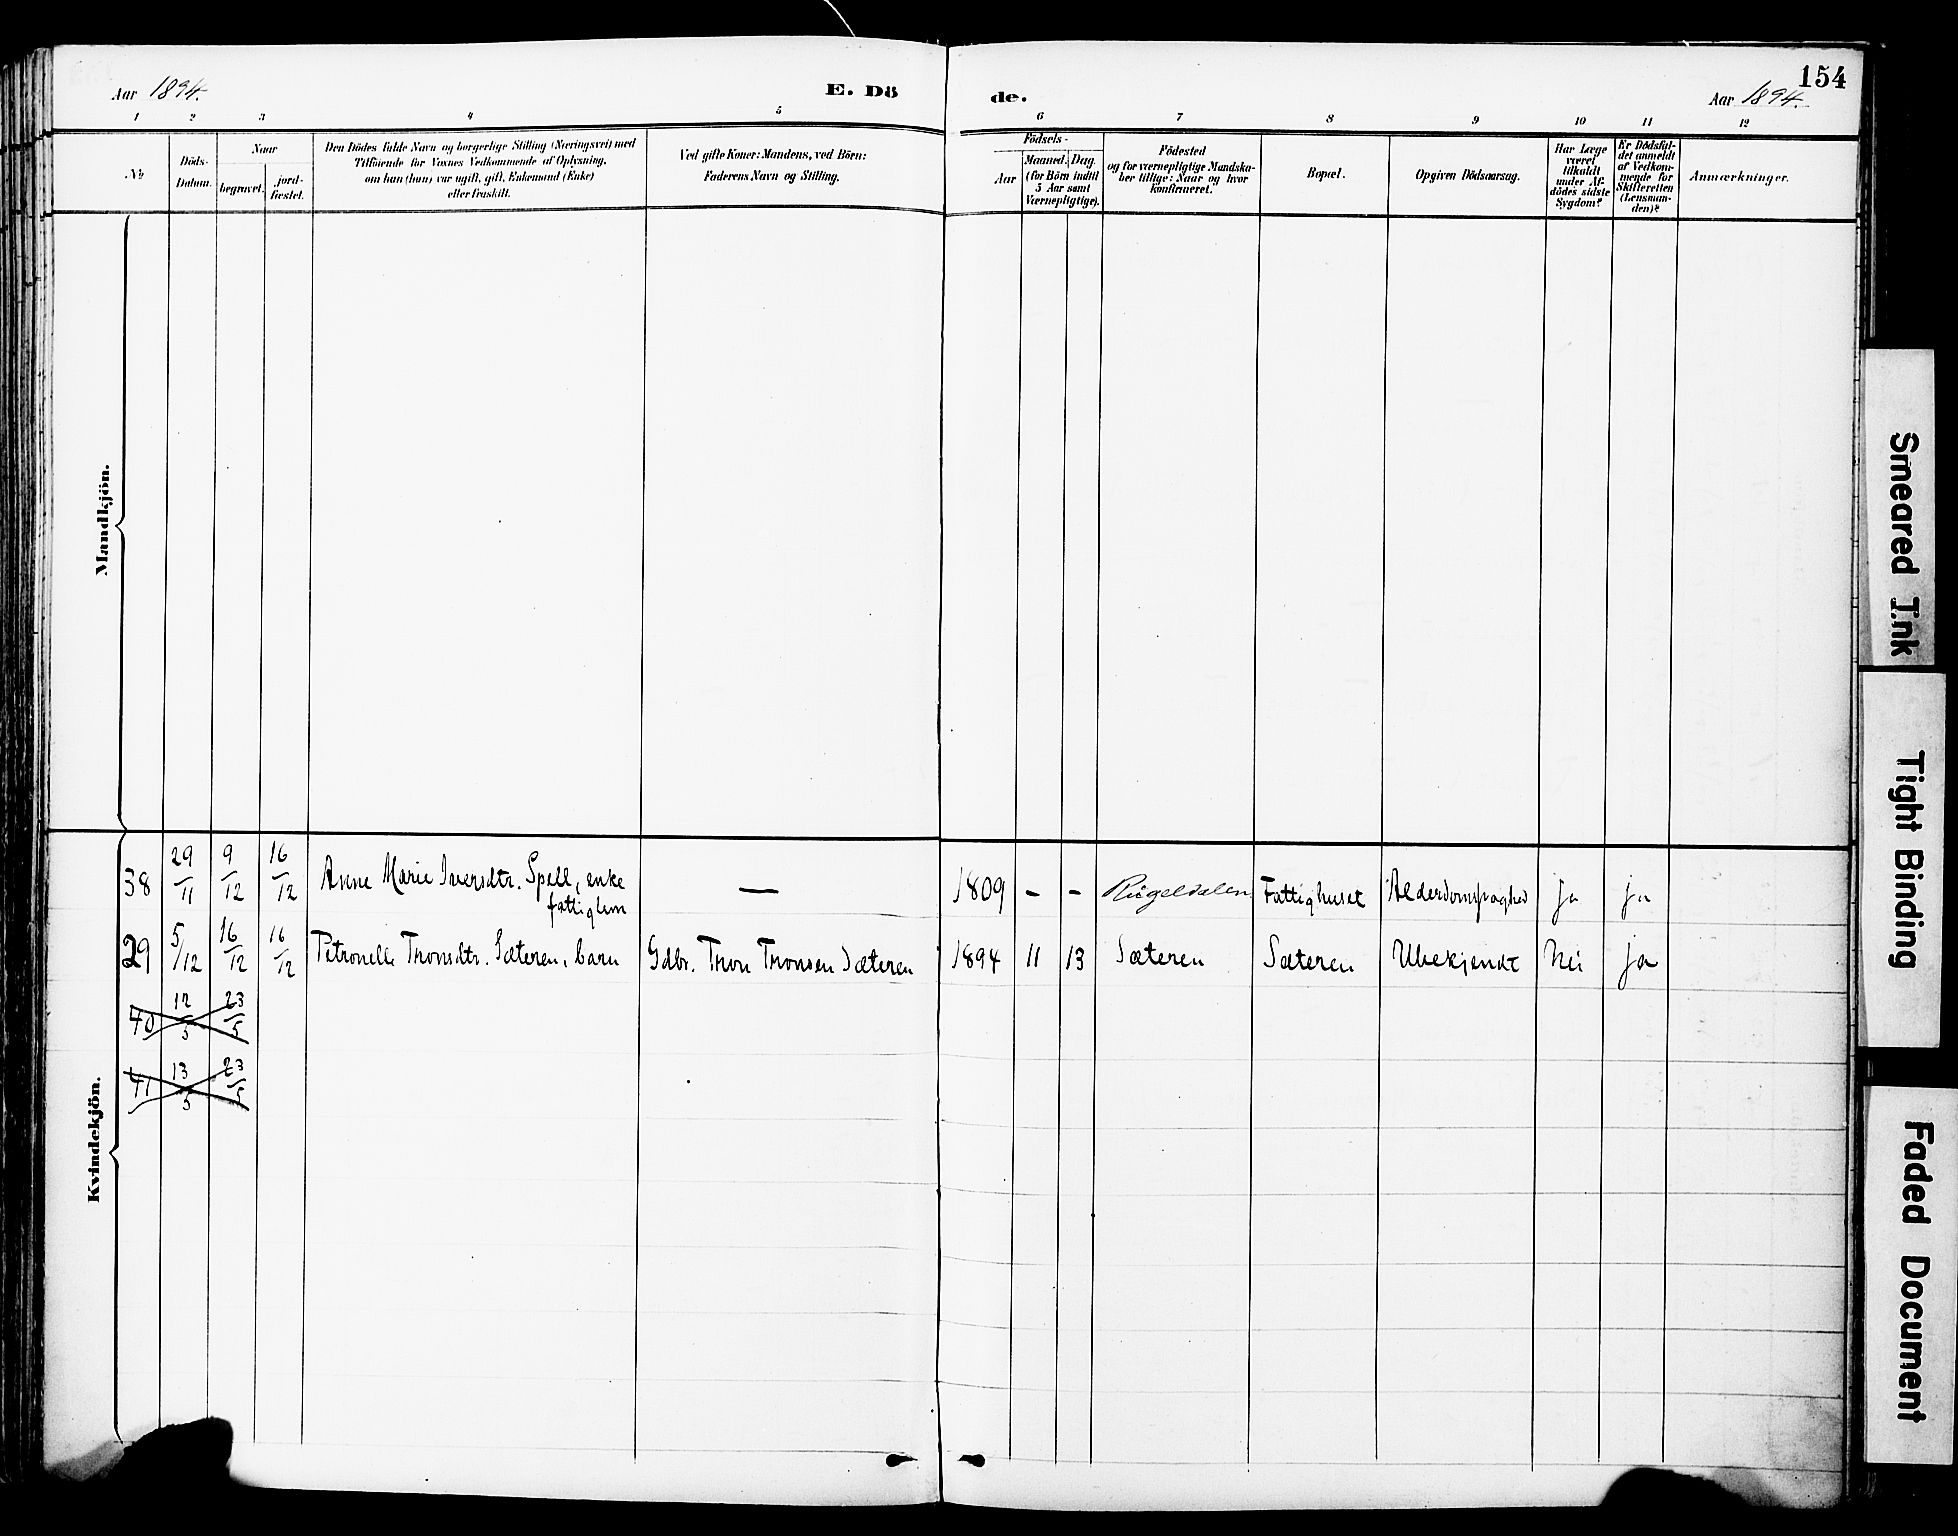 154
Aar 1894.
E. Dö
de.
Aar 1894.
1 2 3 4 5 6 7 8 9 10 11 12
№
Döds-
Datum.
Naar
begravet.
jord-
fæstet.
Den Dödes fulde Navn og borgerlige Stilling (Næringsvei) med
Tilföiende for Voxnes Vedkommende af Oplysning,
om han (hun) var ugift, gift, Enkemand (Enke)
eller fraskilt.
Ved gifte Koner: Mandens, ved Börn:
Faderens Navn og Stilling.
Födsels-
Aar
Maaned.
Dag.
(for Börn indtil
5 Aar samt
Værnepligtige).
Födested
og for værnepligtige Mandska-
ber tillige: Naar og hvor
konfirmeret.
Bopæl.
Opgiven Dödsaarsag.
Har Læge
været
tilkaldt
under Af-
dödes sidste
Sygdom?
Er Dödsfal-
det anmeldt
af Vedkom-
mende for
Skifteretten
(Lensman-
den)?
Anmærkninger.
Mandkjön.
Kvindekjön.
38 29/11 9/12 16/12 Anne Marie Iversdtr. Spell, enke — 1809 - - Rugeldalen Fattighuset ja ja
fattiglem
29 5/12 16/12 16/12 Petronelle Thronsdtr. Sæteren, barn Gdbr. Thron Thronsen Sæteren 1894 11 13 Sæteren Sæteren Ubekjendt Nei ja
40 12/5 23/5
41 13/5 23/5
Smeared Ink
Tight Binding
Faded Document